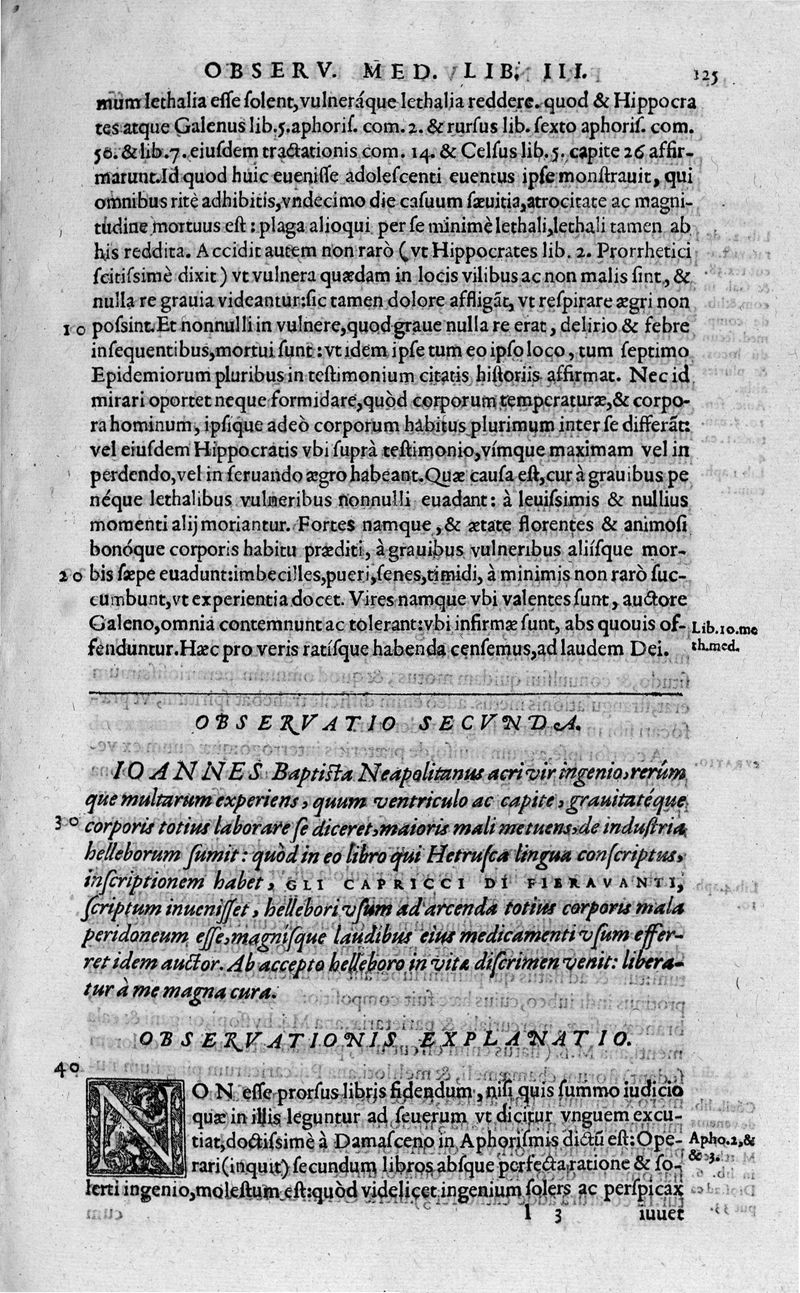 OBSERV. MED. LIB. III. 125
mum lethalia eſſe ſolent, vulneráque lethalia reddere. quod & Hippocra
tes atque Galenus lib.5. aphoriſ. com. 2. & rurſus lib. ſexto aphoriſ. com.
50. & lib. 7. eiuſdem tractationis com. 14. & Celſus lib. 5. capite 26 affir-
marunt. Id quod huic eueniſſe adoleſcenti euentus ipſe monſtrauit, qui
omnibus ritè adhibitis, vndecimo die caſuum ſæuitia, atrocitate ac magni-
tudine mortuus eſt: plaga alioqui per ſe minimè lethali, lethali tamen ab
his reddita. Accidit autem non rarò (vt Hippocrates lib. 2. Prorrhetici
ſcitiſsimè dixit) vt vulnera quædam in locis vilibus ac non malis ſint, &
nulla re grauia videantur: ſic tamen dolore affligāt, vt reſpirare ægri non
10 poſsint. Et nonnulli in vulnere, quod graue nulla re erat, delirio & febre
inſequentibus, mortui ſunt: vt idem ipſe tum eo ipſo loco, tum ſeptimo
Epidemiorum pluribus in teſtimonium citatis hiſtoriis affirmat. Nec id
mirari oportet neque formidare, quòd corporum temperaturæ, & corpo-
ra hominum, ipſique adeò corporum habitus plurimum inter ſe differāt:
vel eiuſdem Hippocratis vbi ſuprà teſtimonio, vímque maximam vel in
perdendo, vel in ſeruando ægro habeant. Quæ cauſa eſt, cur à grauibus pe
néque lethalibus vulneribus nonnulli euadant: à leuiſsimis & nullius
momenti alij moriantur. Fortes namque, & ætate florentes & animoſi
bonóque corporis habitu præditi, à grauibus vulneribus aliíſque mor-
20 bis ſæpe euadunt: imbecilles, pueri, ſenes, timidi, à minimis non rarò ſuc-
cumbunt, vt experientia docet. Vires namque vbi valentes ſunt, auctore
Galeno, omnia contemnunt ac tolerant: vbi infirmæ ſunt, abs quouis of- Lib. 10. me
fenduntur. Hæc pro veris ratíſque habenda cenſemus, ad laudem Dei. th. med.
OBSERVATIO SECVNDA.
IOANNES Baptiſta Neapolitanus acri vir ingenio, rerúm
que multarum experiens, quum ventriculo ac capite, grauitatéque
30 corporis totius laborare ſe diceret, maioris mali metuens, de induſtria
helleborum ſumit: quòd in eo libro qui Hetruſca lingua conſcriptus,
inſcriptionem habet, GLI CAPRICCI DI FIERAVANTI,
ſcriptum inueniſſet, hellebori vſum ad arcenda totius corporis mala
peridoneum eſſe, magniſque laudibus eius medicamenti vſum effer-
ret idem auctor. Ab accepto helleboro in vitæ diſcrimen venit: libera-
tur à me magna cura.
OBSERVATIONIS EXPLANATIO.
40
NON eſſe prorſus libris fidendum, niſi quis ſummo iudicio
quæ in illis leguntur ad ſeuerum vt dicitur vnguem excu-
tiat, doctiſsimè à Damaſceno in Aphoriſmis dictū eſt: Ope- Apho. 2, &
rari (inquit) ſecundum libros abſque perfecta ratione & ſo- & 3.
lerti ingenio, moleſtum eſt: quòd videlicet ingenium ſolers ac perſpicax
l 3 iuuet